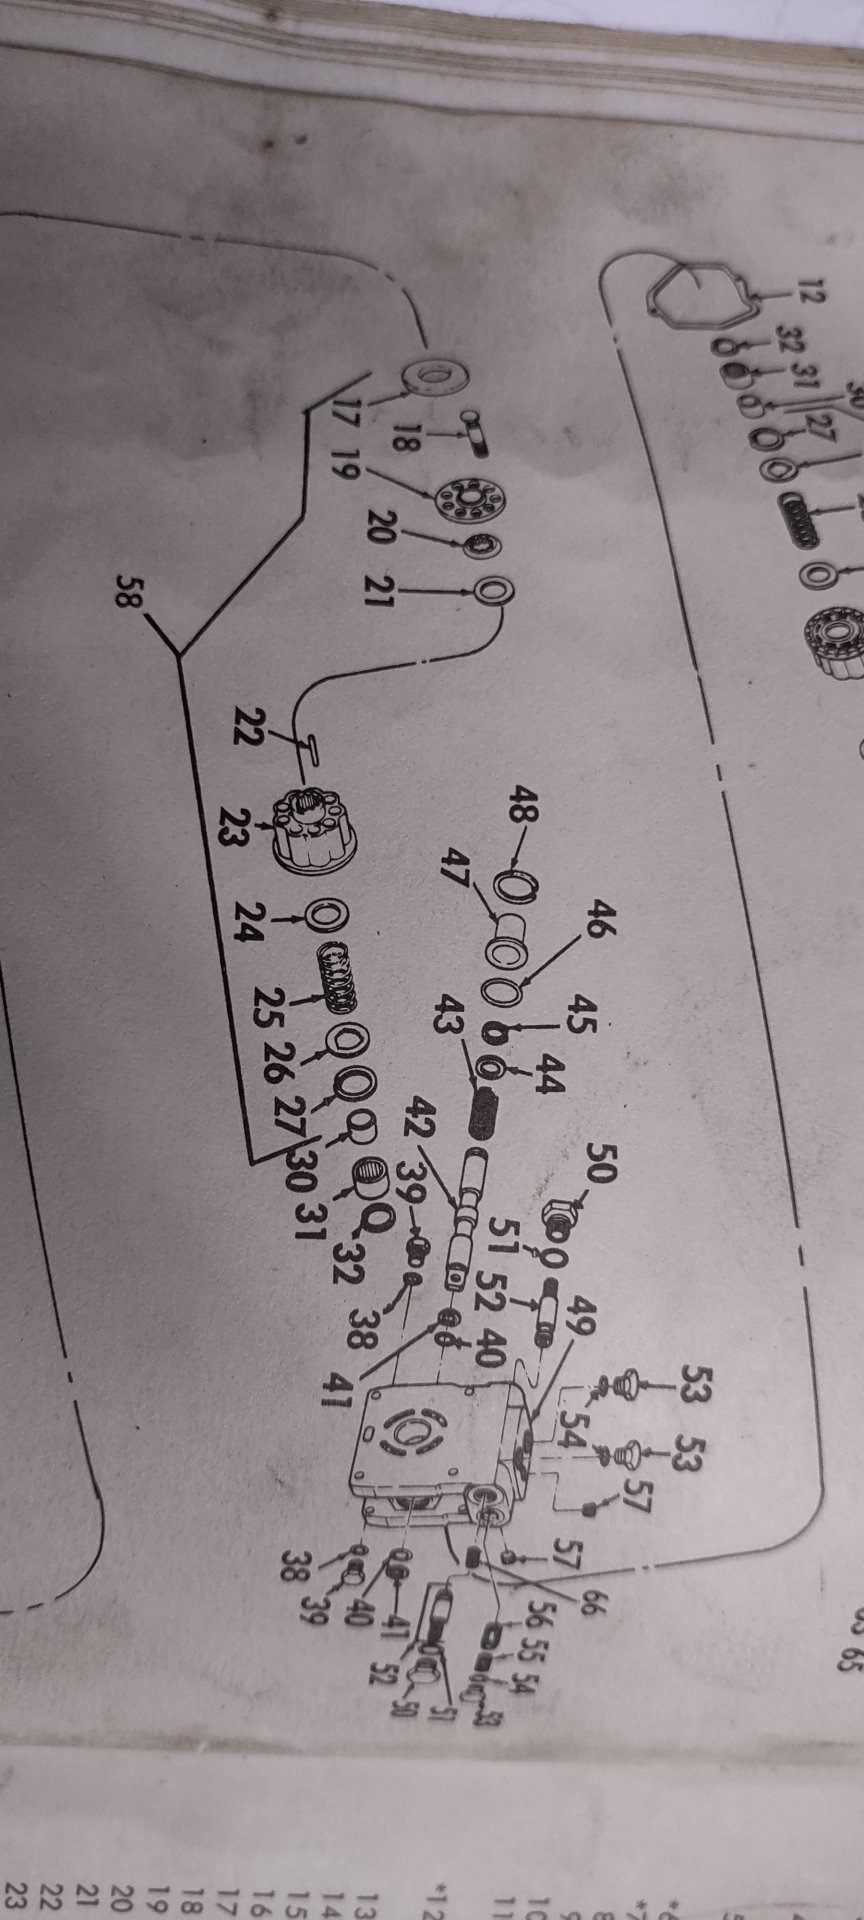 12
32
31
27
17
18
19
20
21
58
22
23
24
25
26
27
30
31
32
48
47
46
45
44
43
42
39
38
41
40
50
51
52
49
53
54
53
57
57
66
56
55
54
53
38
39
40
41
52
50
51
65
*6
*7
8
9
10
11
*12
13
14
15
16
17
18
19
20
21
22
23